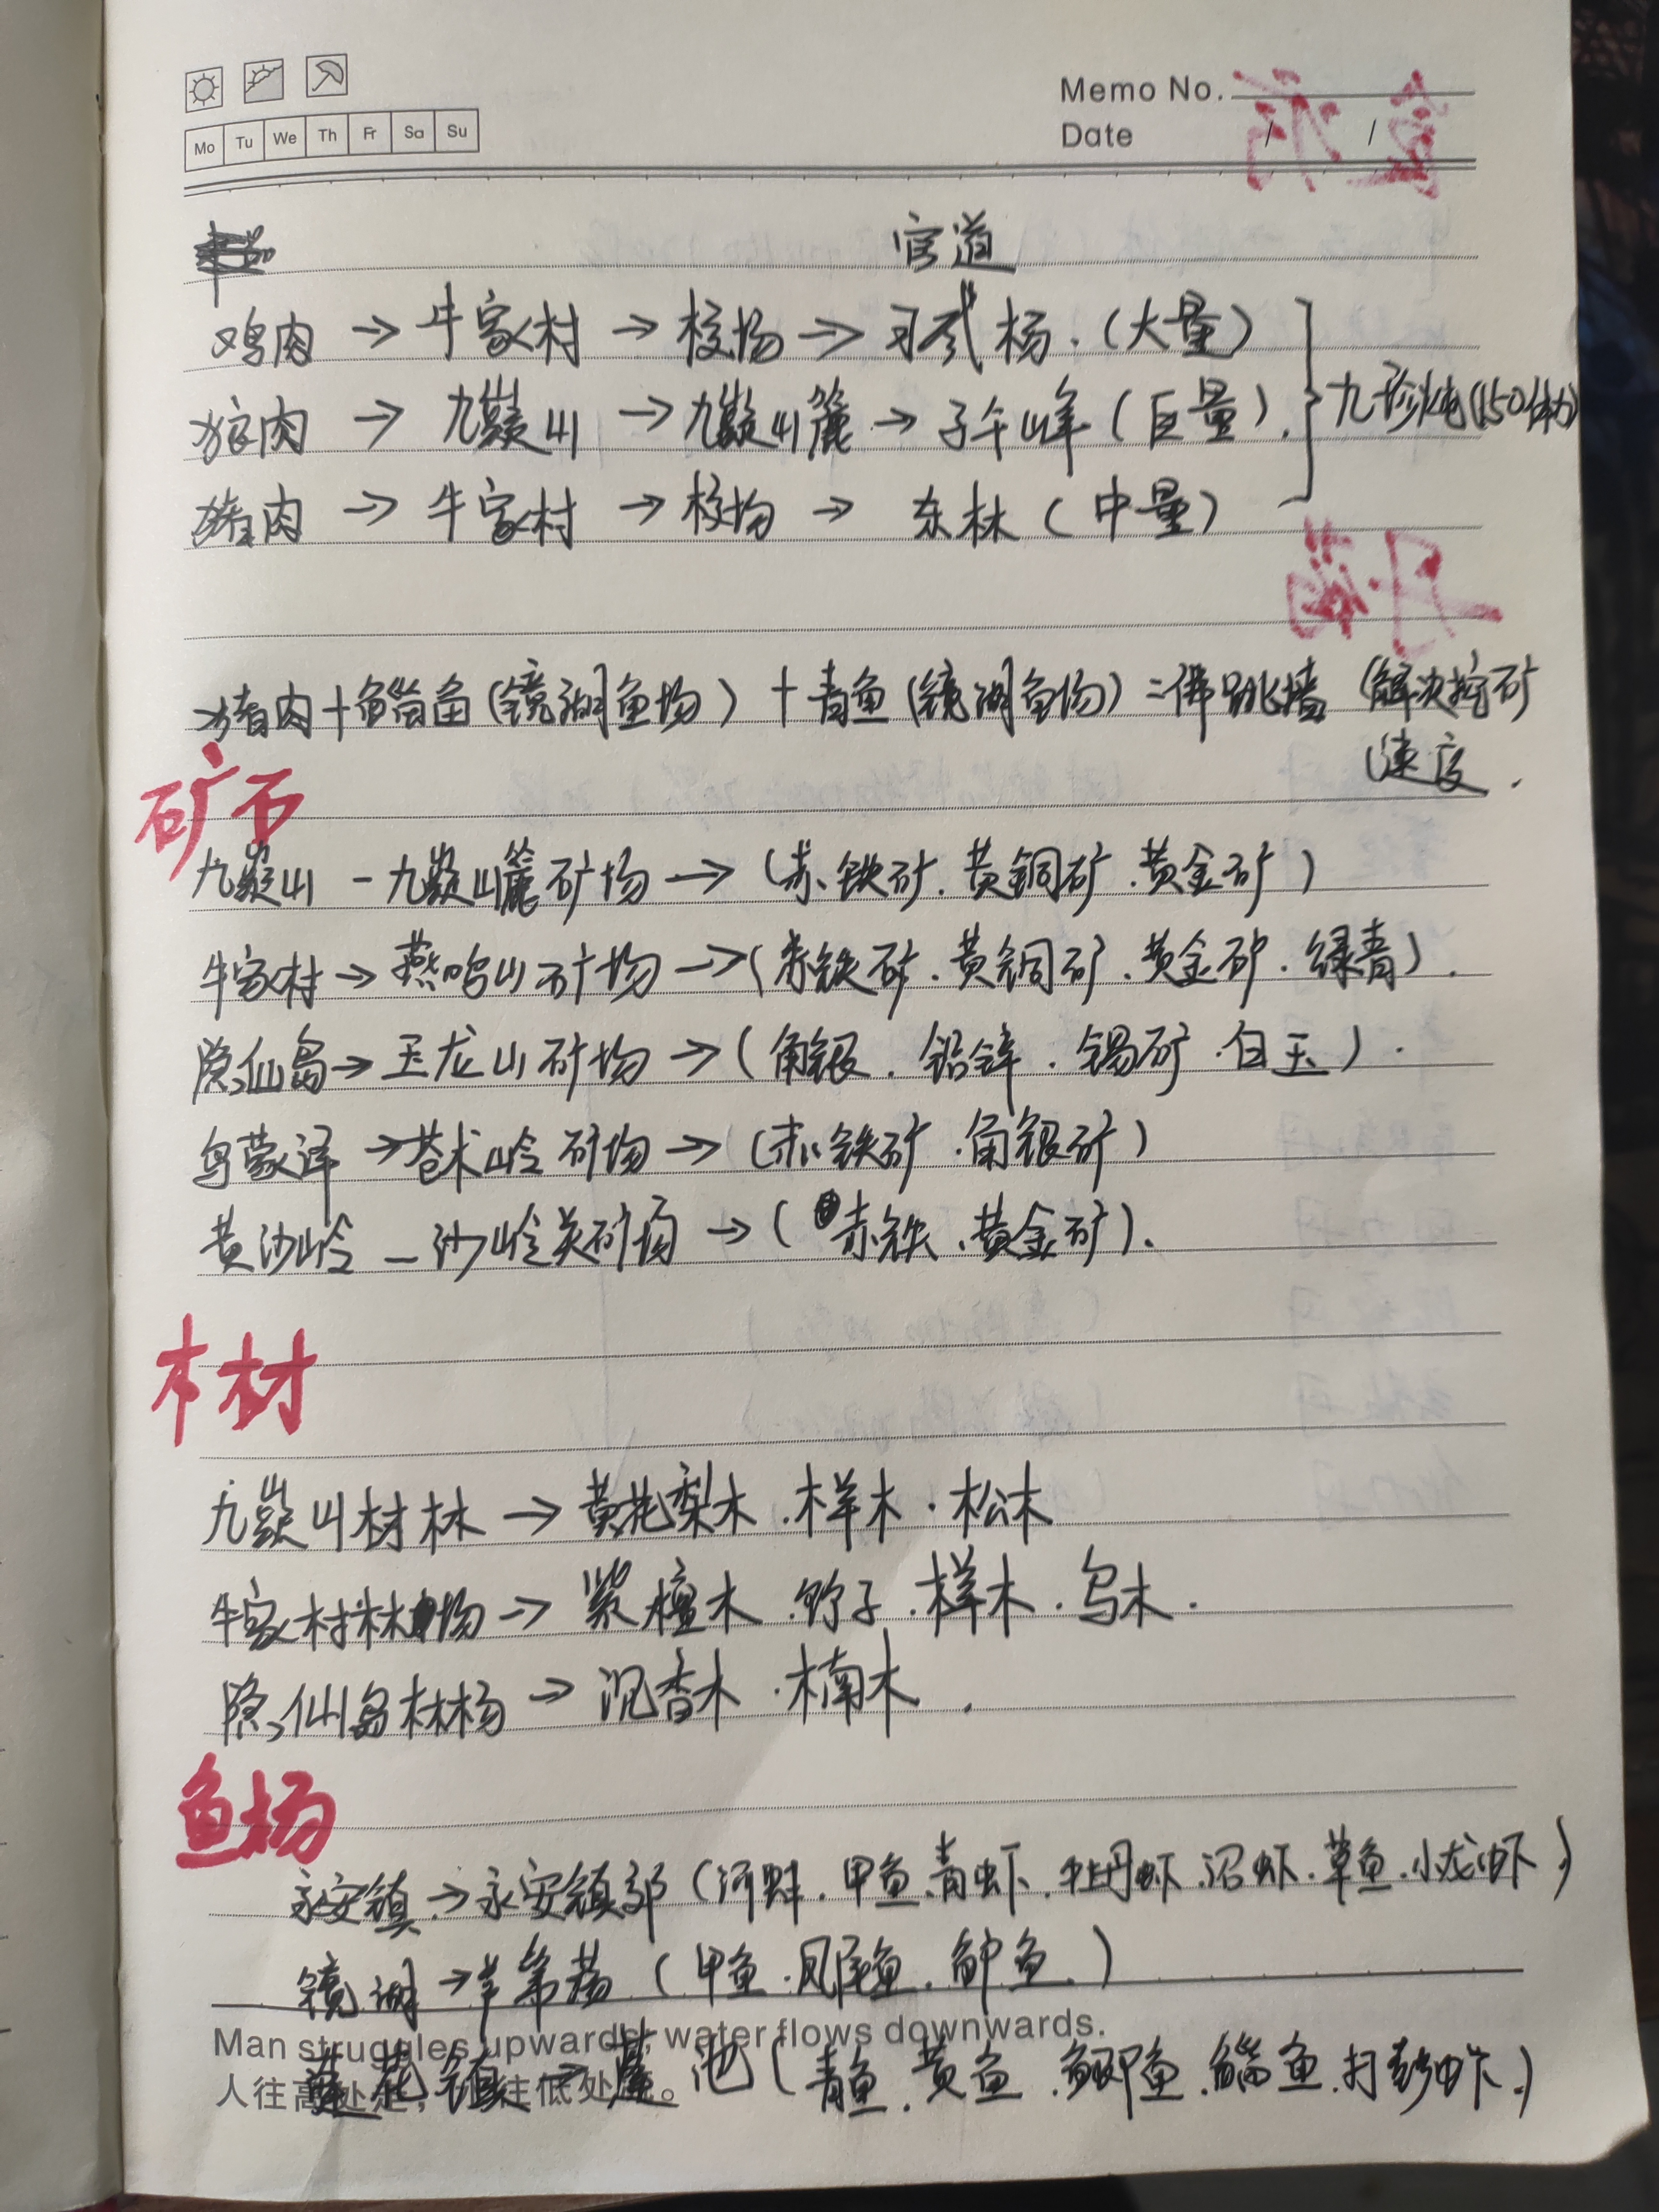 Memo No.
Mo Tu We Th Fr Sa Su
Date / /
官道
鸡肉 → 牛家村 → 校场 → 习武场.(大量)
狼肉 → 九嶷山 → 九嶷山麓 → 子午峰(巨量).
九珍炖(150体力)
猪肉 → 牛家村 → 校场 → 东林(中量)
猪肉+鲻鱼(镜湖鱼场)+青鱼(镜湖鱼场)=佛跳墙(解决挖矿
速度.
矿石
九嶷山-九嶷山麓矿场→(赤铁矿.黄铜矿.黄金矿)
牛家村→燕鸣山矿场→(赤铁矿.黄铜矿.黄金矿.绿青).
隐仙岛→玉龙山矿场→(角银.铅锌.锡矿.白玉).
乌蒙泽→苍术岭矿场→(赤铁矿.角银矿)
黄沙岭-沙岭关矿场→(赤铁、黄金矿).
木材
九嶷山材林→黄花梨木.样木.松木
牛家村林场→紫檀木.竹子.样木.乌木.
隐仙岛林场→沉香木.楠木.
鱼场
永安镇→永安镇郊(河蚌.甲鱼.青虾.牡丹虾.沼虾.草鱼.小龙虾)
镜湖→羊第荡(甲鱼.凤尾鱼.鲈鱼.)
Man struggles upwards, water flows downwards.
人往高处走,水往低处流。
莲花镇→莲池(青鱼.黄鱼.鲫鱼.鲻鱼.)